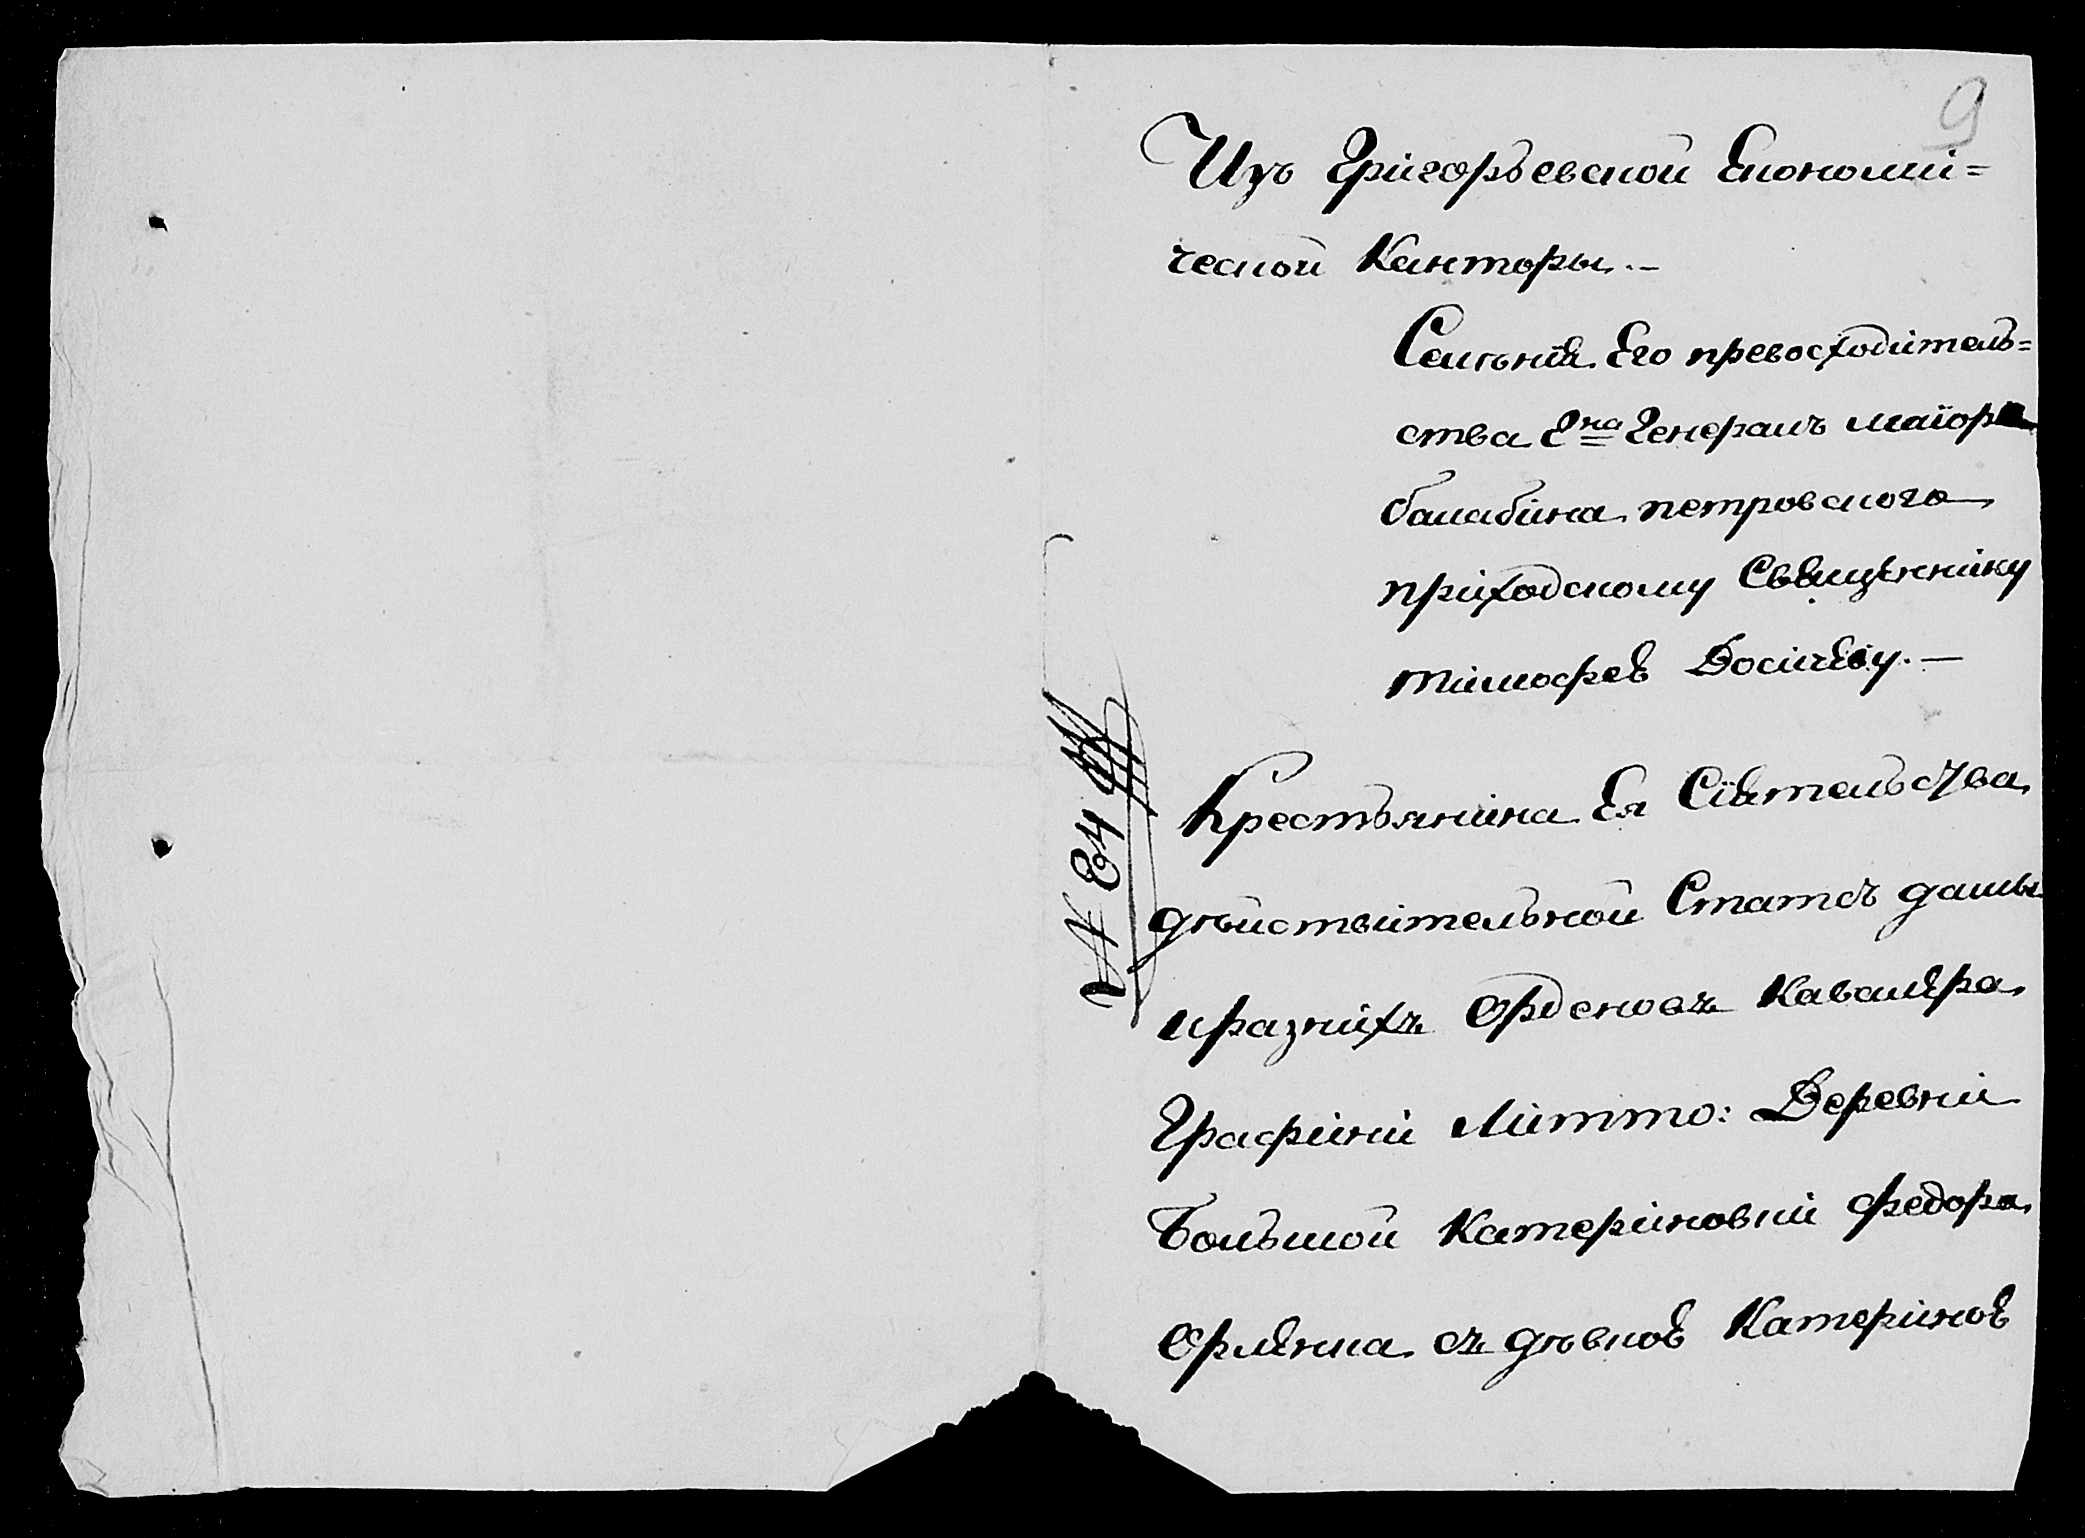 9
Изъ Григорьевской Економи=
ческой Канторы.–
Селѣнія Его превосходитель=
ства Г:на Генералъ маіора
балабина петровского
приходскому Священнику
тимофеѣ
Крестьянина Ея Сіятельства
дѣйствительной Статсъ дамы
и разнихъ Орденовъ Кавалера
Графини Литто: Деревни
Большой Катериновки Федора
съ дѣвкоѣ Катериноѣ